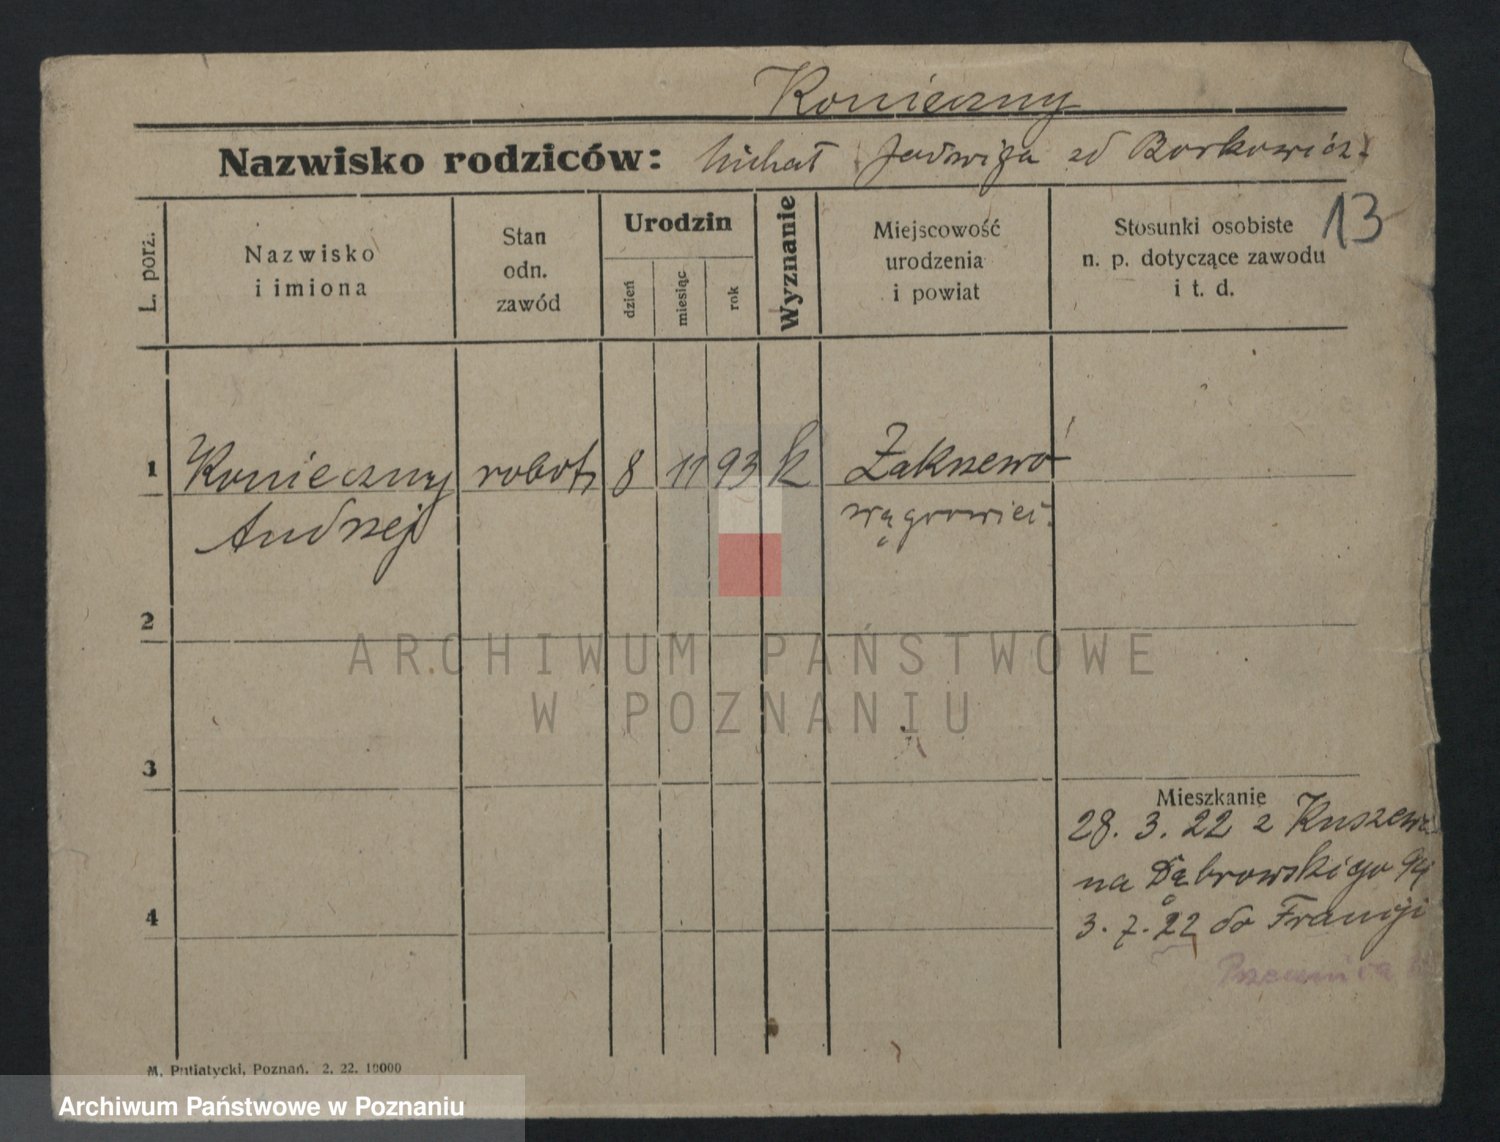 Konieczny
Nazwisko rodziców: Michał Jadwiga zd Borkowicz.
13
L. porz.
Nazwisko
i imiona
Stan
odn.
zawód
Urodzin
dzień
miesiąc
rok
Wyznanie
Miejscowość
urodzenia
i powiat
Stosunki osobiste
n. p. dotyczące zawodu
i t. d.
1 Konieczny robot. 8 11 93 k Zakszewo
Andrzej wągrowiec.
2
ARCHIWUM PAŃSTWOWE
W POZNANIU
3
Mieszkanie
28. 3. 22 z Kuszewa
na Dąbrowskiego 94
4
3. 7. 22 do Francji
M. Putiatycki, Poznań. 2. 22. 10000
Archiwum Państwowe w Poznaniu